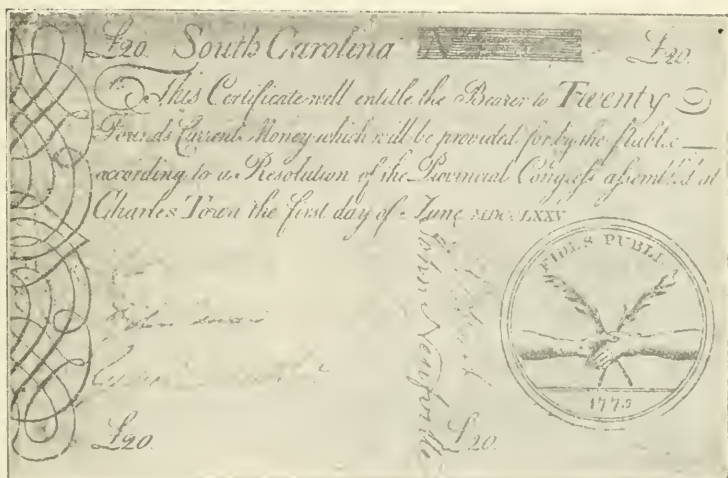 £20. South Carolina N £20.
This Certificate will entitle the Bearer to Twenty
Pounds Current Money which will be provided for by the Public
according to a Resolution of the Provincial Congress assembl'd at
Charles Town the first day of June MDCCLXXV
FIDES PUBLI
1775
John
£20. £20.